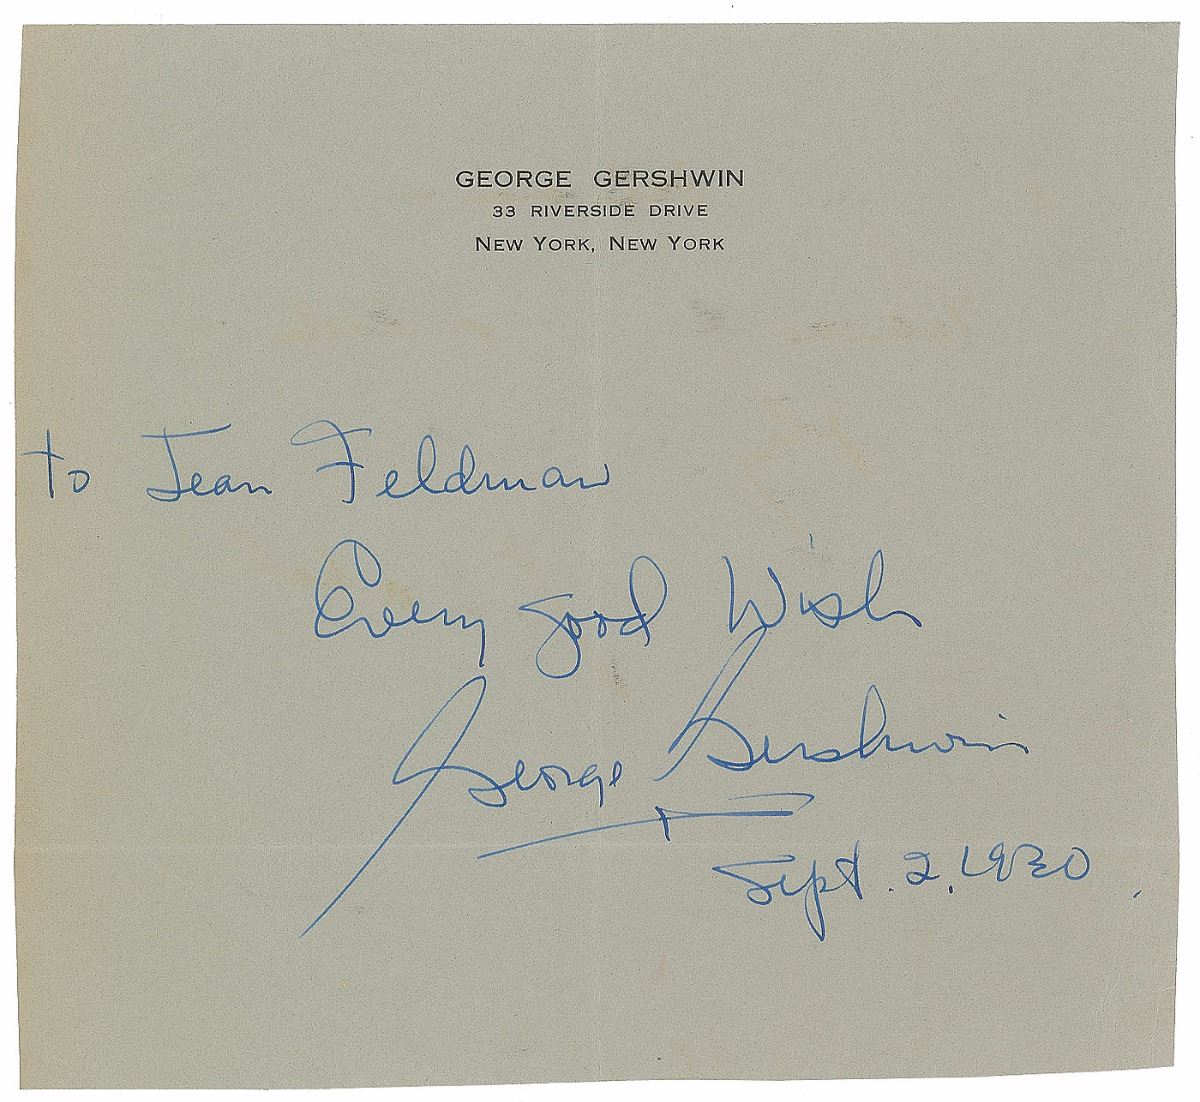 GEORGE GERSHWIN
33 RIVERSIDE DRIVE
NEW YORK, NEW YORK
To Jean Feldman
Every good Wish
George Gershwin
Sept. 2, 1930